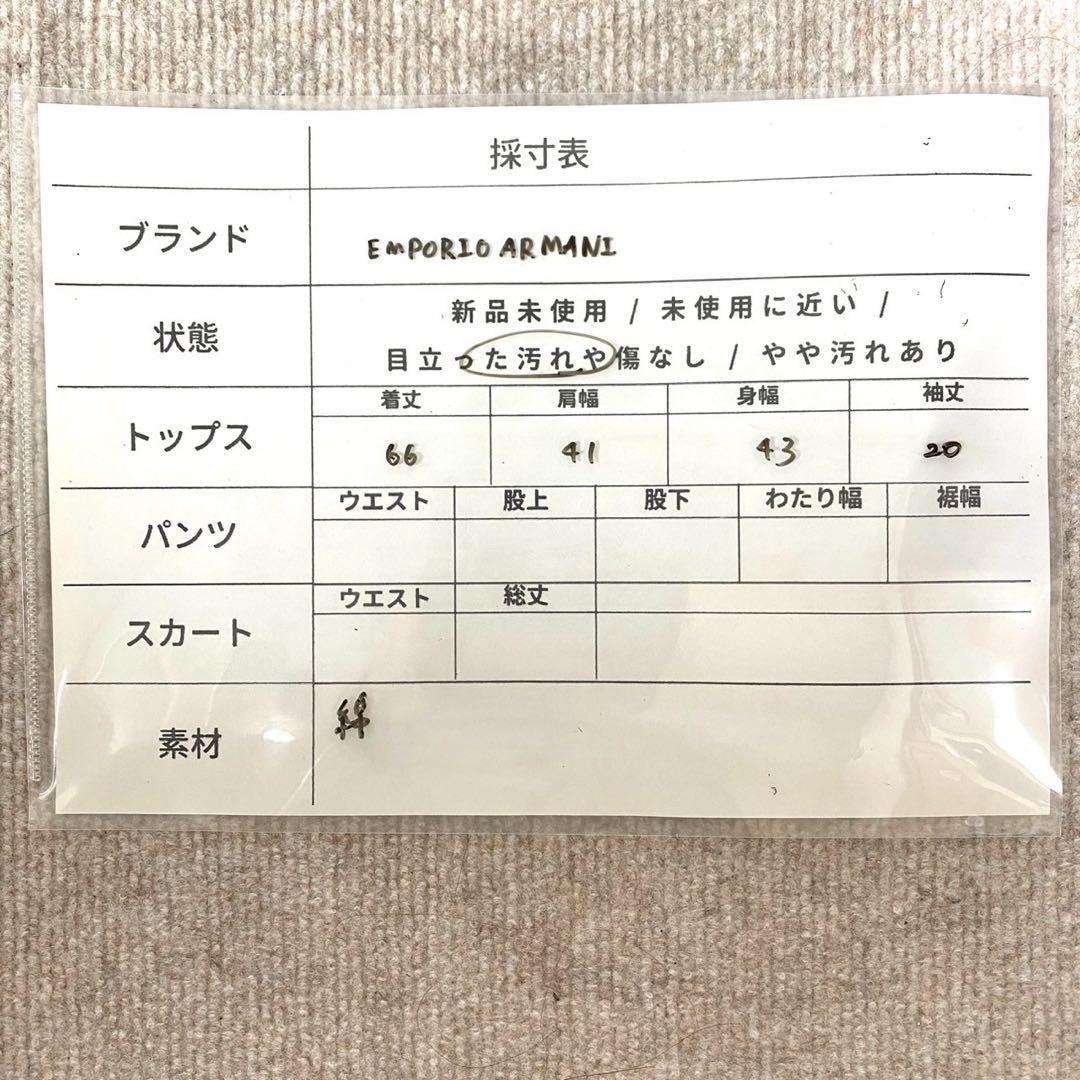 採寸表
ブランド
EMPORIO ARMANI
状態
新品未使用 / 未使用に近い /
目立った汚れや傷なし / やや汚れあり
トップス
着丈 肩幅 身幅 袖丈
66 41 43 20
パンツ
ウエスト 股上 股下 わたり幅 裾幅
スカート
ウエスト 総丈
素材
綿